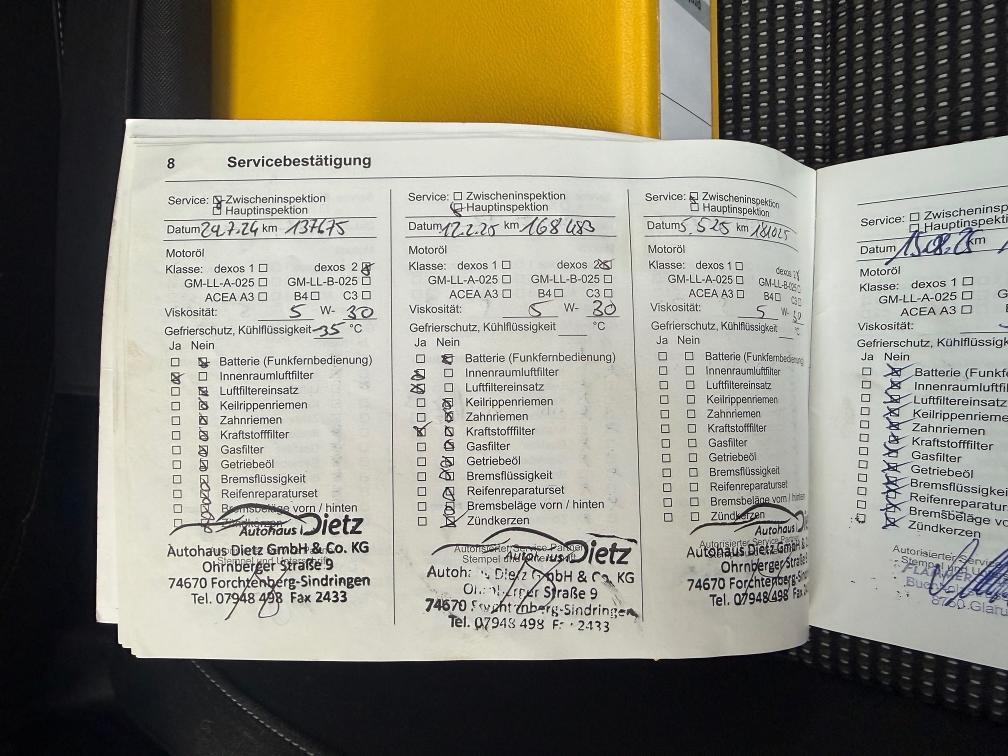 8 Servicebestätigung
Service: Zwischeninspektion
Hauptinspektion
Datum 24.7.24 km 137675
Motoröl
Klasse: dexos 1 dexos 2
GM-LL-A-025 GM-LL-B-025
ACEA A3 B4 C3
Viskosität: 5 W- 30
Gefrierschutz, Kühlflüssigkeit -35 °C
Ja Nein
Batterie (Funkfernbedienung)
Innenraumluftfilter
Luftfiltereinsatz
Keilrippenriemen
Zahnriemen
Kraftstofffilter
Gasfilter
Getriebeöl
Bremsflüssigkeit
Reifenreparaturset
Bremsbeläge vorn / hinten
Zündkerzen
Autohaus Dietz
Autohaus Dietz GmbH & Co. KG
Ohrnberger Straße 9
74670 Forchtenberg-Sindringen
Tel. 07948 498 Fax 2433
Service: Zwischeninspektion
Hauptinspektion
Datum 12.2.25 km 168483
Motoröl
Klasse: dexos 1 dexos 2
GM-LL-A-025 GM-LL-B-025
ACEA A3 B4 C3
Viskosität: 5 W- 30
Gefrierschutz, Kühlflüssigkeit °C
Ja Nein
Batterie (Funkfernbedienung)
Innenraumluftfilter
Luftfiltereinsatz
Keilrippenriemen
Zahnriemen
Kraftstofffilter
Gasfilter
Getriebeöl
Bremsflüssigkeit
Reifenreparaturset
Bremsbeläge vorn / hinten
Zündkerzen
Autorisierter Service Partner
Autohaus Dietz
Autohaus Dietz GmbH & Co. KG
Ohrnberger Straße 9
74670 Forchtenberg-Sindringen
Tel. 07948 498 Fax 2433
Service: Zwischeninspektion
Hauptinspektion
Datum 5.5.25 km 181025
Motoröl
Klasse: dexos 1 dexos 2
GM-LL-A-025 GM-LL-B-025
ACEA A3 B4 C3
Viskosität: 5 W- 30
Gefrierschutz, Kühlflüssigkeit °C
Ja Nein
Batterie (Funkfernbedienung
Innenraumluftfilter
Luftfiltereinsatz
Keilrippenriemen
Zahnriemen
Kraftstofffilter
Gasfilter
Getriebeöl
Bremsflüssigkeit
Reifenreparaturset
Bremsbeläge vorn / hinten
Zündkerzen
Autorisierter Service Par
Autohaus Dietz
Autohaus Dietz GmbH &
Ohrnberger Straße 9
74670 Forchtenberg-Sindringen
Tel. 07948 498 Fax
Service: Zwischeninsp
Hauptinspektion
Datum km
Motoröl
Klasse: dexos 1
GM-LL-A-025 G
ACEA A3
Viskosität:
Gefrierschutz, Kühlflüssigkei
Ja Nein
Batterie (Funkfe
Innenraumluftfi
Luftfiltereinsatz
Keilrippenriemen
Zahnriemen
Kraftstofffilter
Gasfilter
Getriebeöl
Bremsflüssigkei
Reifenreparatur
Bremsbeläge vo
Zündkerzen
Autorisierter Servic